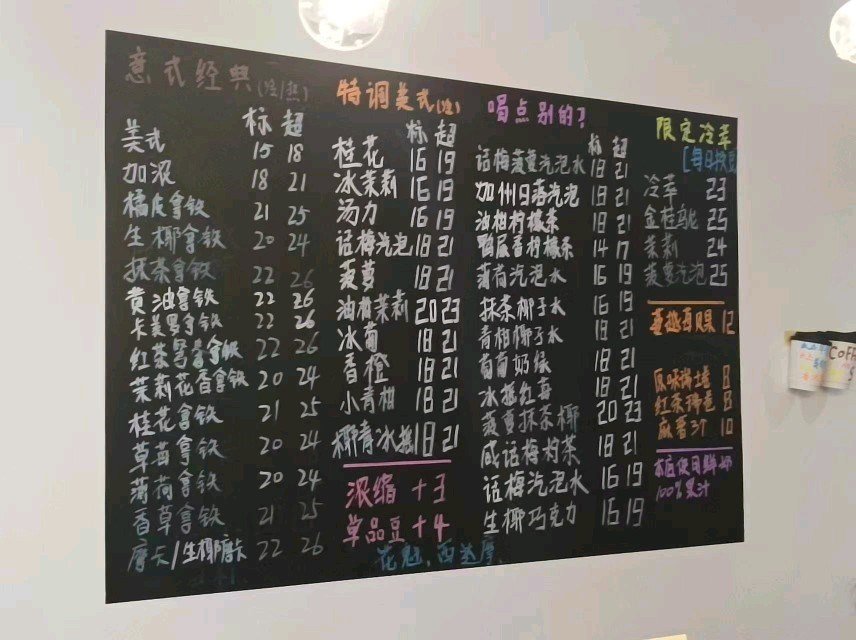 意式经典(冷/热)
标 超
美式 15 18
加浓 18 21
橘皮拿铁 21 25
生椰拿铁 20 24
抹茶拿铁 22 26
黄油拿铁 22 26
卡美罗拿铁 22 26
红茶拿铁 22 26
茉莉花香拿铁 20 24
桂花拿铁 21 25
草莓拿铁 20 24
薄荷拿铁 20 24
香草拿铁 21 25
摩卡/生椰摩卡 22 26
特调美式(冷)
标 超
桂花 16 19
冰茉莉 16 19
汤力 16 19
话梅汽泡 18 21
菠萝 18 21
油柑茉莉 20 23
冰葡 18 21
香橙 18 21
小青柑 18 21
椰青冰摇 18 21
浓缩 +3
单品豆 +4
花魁、西达摩
喝点别的?
标 超
话梅菠萝汽泡水 18 21
加州日落汽泡 18 21
油柑柠檬茶 18 21
鸭屎香柠檬茶 14 17
薄荷汽泡水 16 19
抹茶椰子水 16 19
青柑椰子水 18 21
葡萄奶绿 18 21
冰摇红莓 18 21
菠萝抹茶椰 20 23
咸话梅柠茶 18 21
话梅汽泡水 16 19
生椰巧克力 16 19
限定冷萃
[每日换豆
冷萃 23
金桂乌龙 25
茉莉 24
菠萝汽泡 25
蔓越西贝果 12
原味 8
红茶 8
麻薯3个 10
本店使用鲜奶
100%果汁
Coff